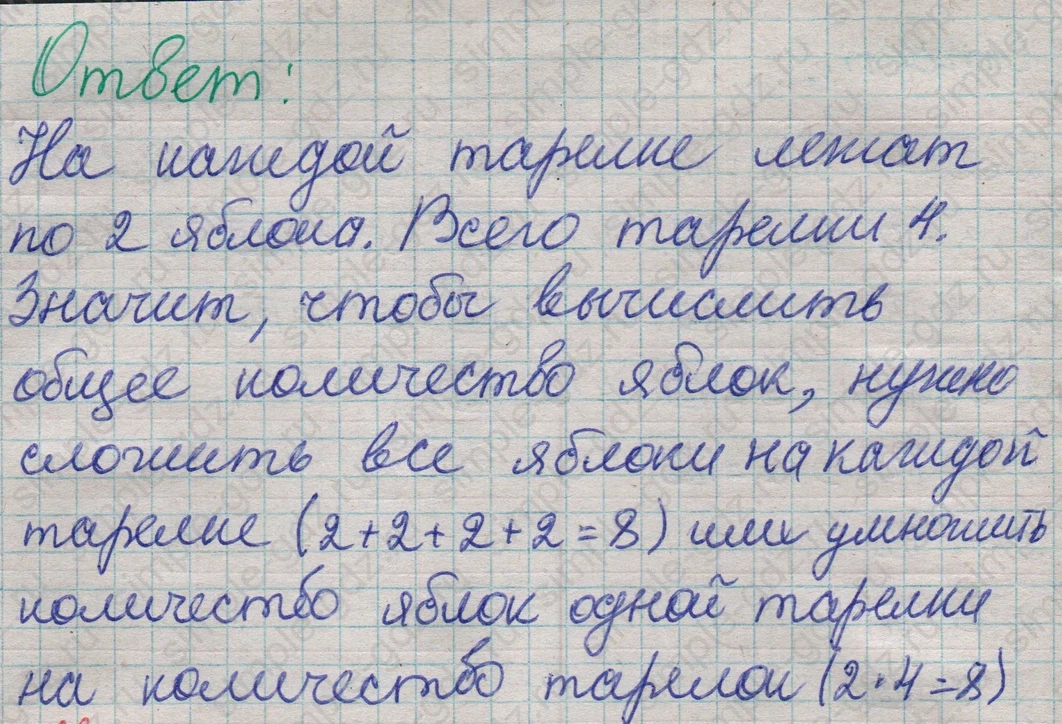 Ответ:
На каждой тарелке лежат
по 2 яблока. Всего тарелки 4.
Значит, чтобы вычислить
общее количество яблок, нужно
сложить все яблоки на каждой
тарелке (2+2+2+2=8) или умножить
количество яблок одной тарелки
на количество тарелок (2·4=8)